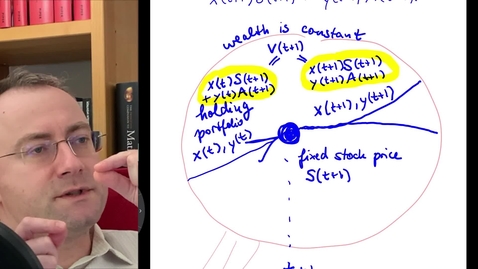 wealth is constant
V(t+1)
x(t)S(t+1)
+y(t)A(t+1)
x(t+1)S(t+1)
y(t+1)A(t+1)
holding
portfolio
x(t), y(t)
x(t+1), y(t+1)
fixed stock price
S(t+1)